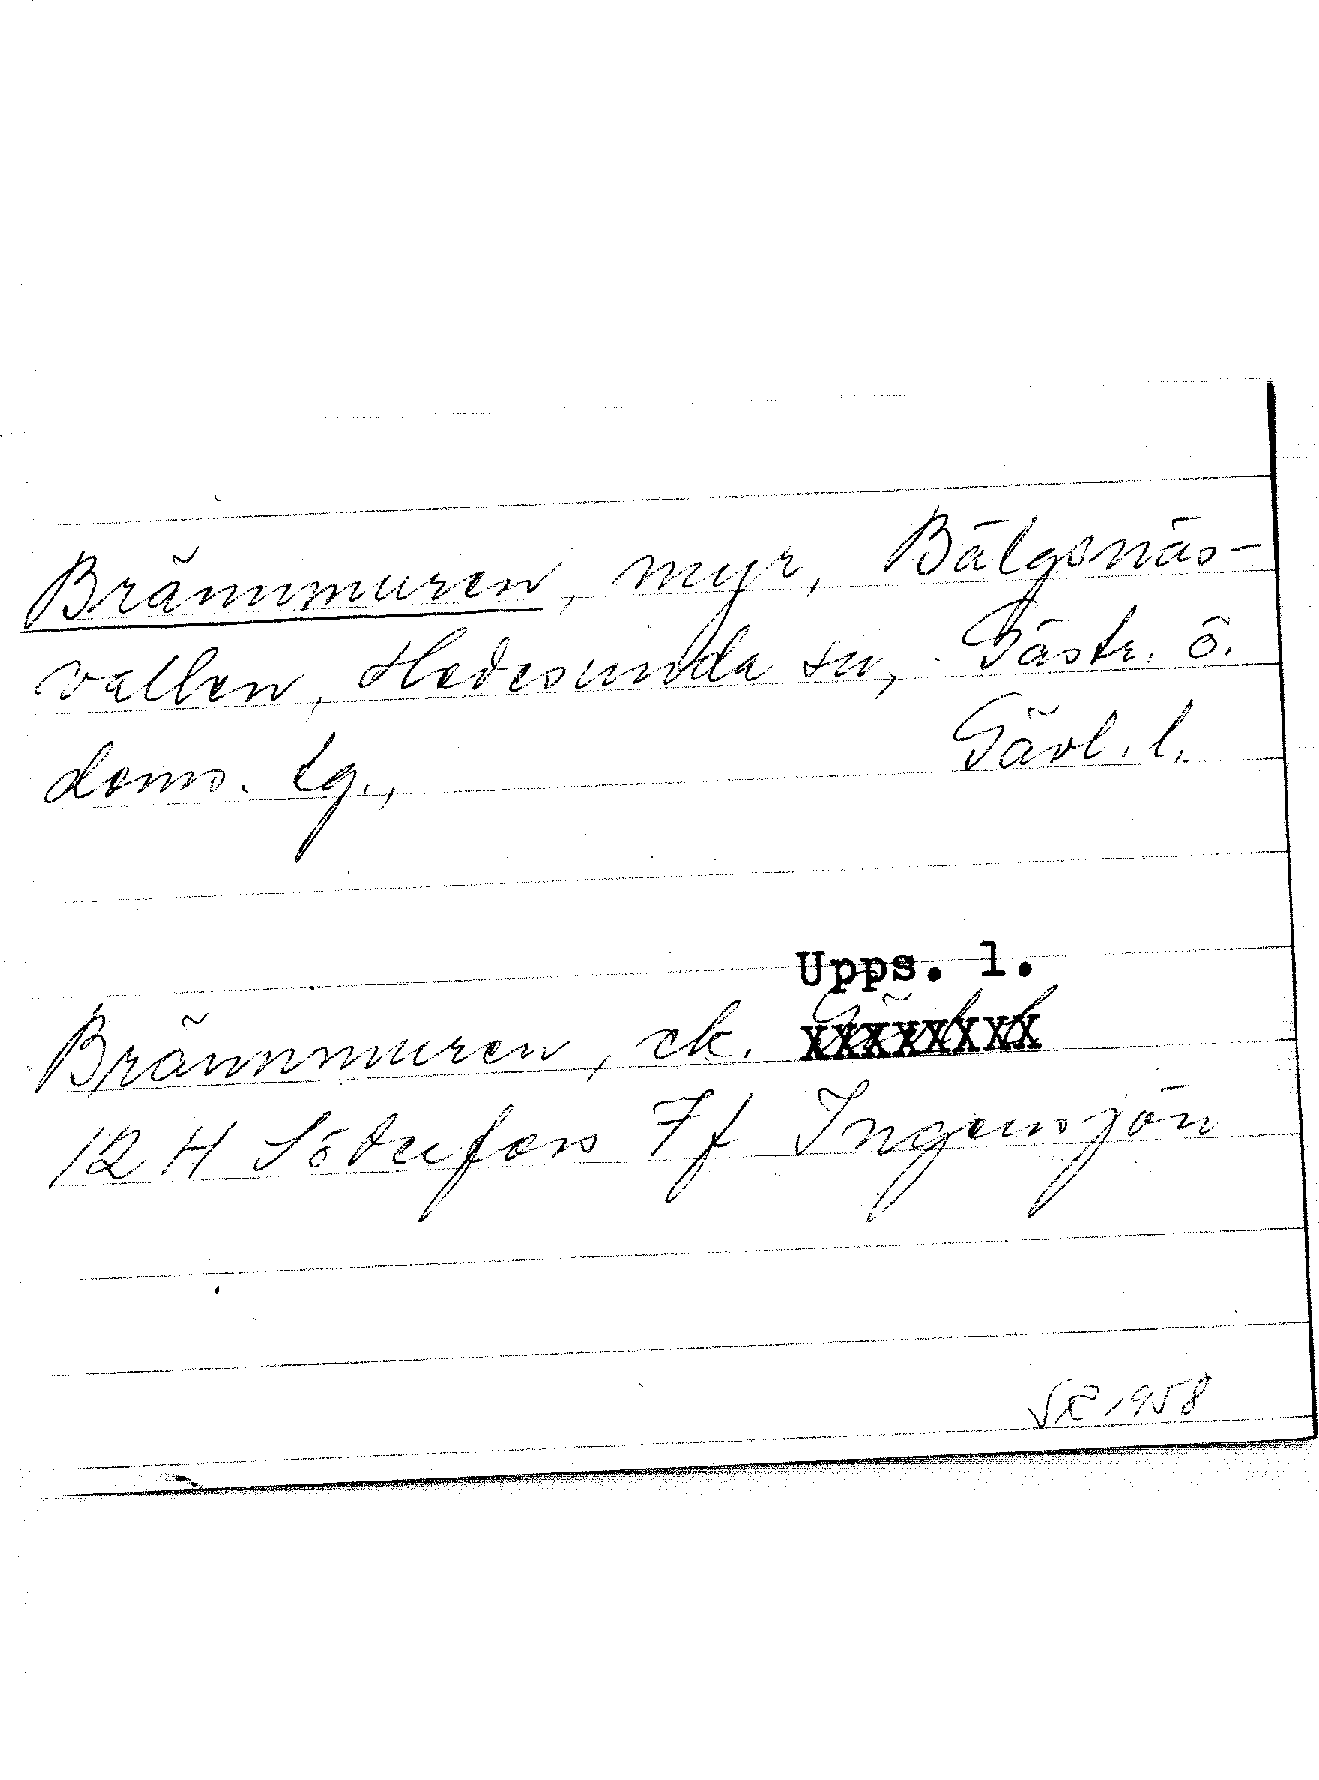 Brännmuren, myr, Bälgsnäs-
vallen, Hedesunda sn, Gästr. ö.
doms. tg., Gävl. l.
Upps. l.
Brännmuren, ek. xxxxxxxx
12 H Söderfors 7f Ingensjön
1958